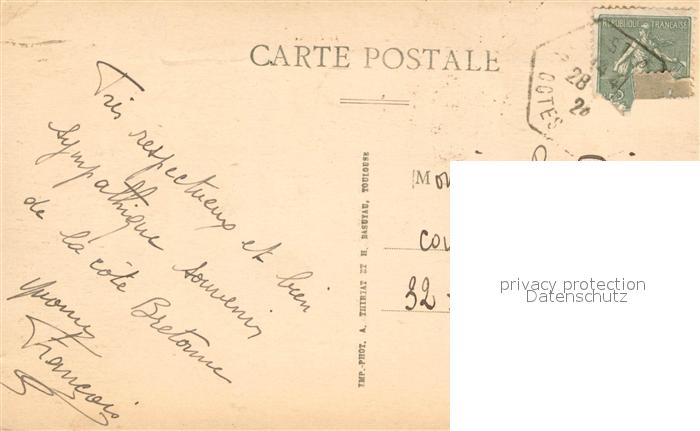 CARTE POSTALE
RÉPUBLIQUE FRANÇAISE
28
20
COTES
Très respectueux et bien
sympathique souvenir
de la côte Bretonne
Yvonne
François
IMP.-PHOT. A. THIRIAT ET H. BASUYAU, TOULOUSE
M
32
privacy protection
Datenschutz